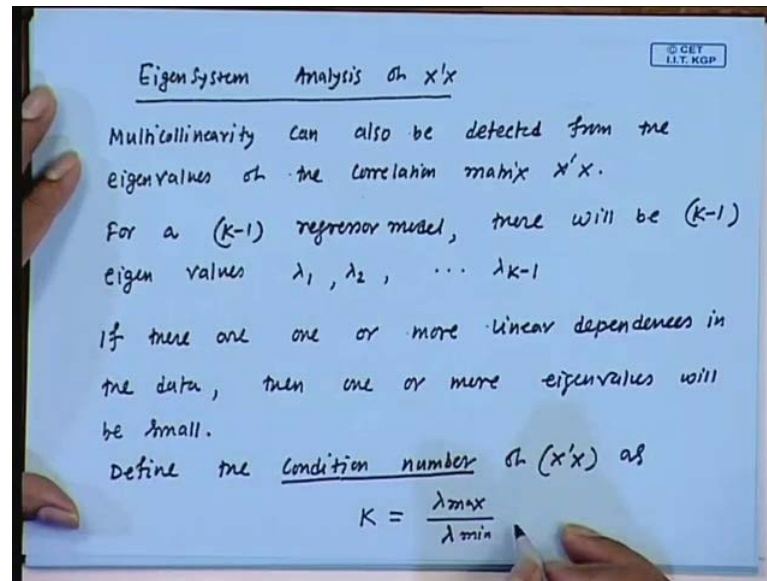 © CET
I.I.T. KGP
Eigen System Analysis of x'x
Multicollinearity can also be detected from the
eigenvalues of the correlation matrix x'x.
For a (K-1) regressor model, there will be (K-1)
eigen values λ₁, λ₂, ... λK-1
If there are one or more linear dependences in
the data, then one or more eigenvalues will
be small.
Define the condition number of (x'x) as
K = λmax / λmin